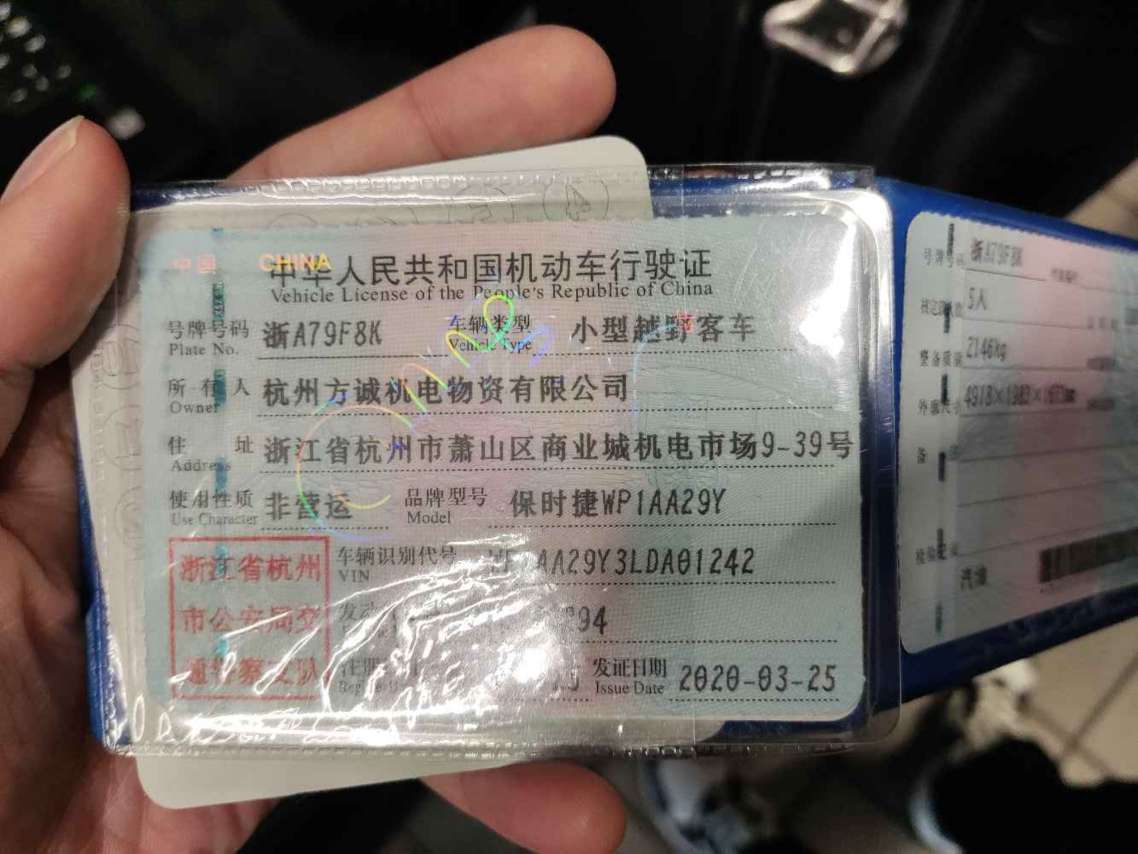 中国 CHINA
中华人民共和国机动车行驶证
Vehicle License of the People's Republic of China
号牌号码 浙A79F8K 车辆类型 小型越野客车
Plate No. Vehicle Type
所有人 杭州方诚机电物资有限公司
Owner
住址 浙江省杭州市萧山区商业城机电市场9-39号
Address
使用性质 非营运 品牌型号 保时捷WP1AA29Y
Use Character Model
浙江省杭州
市公安局交
通警察支队
车辆识别代号 AA29Y3LDA01242
VIN
发动 94
注册 发证日期 2020-03-25
Issue Date
号牌号码 浙A79F8K
5人
整备质量 2146kg
外廓尺寸 4918×1983×
备
汽油